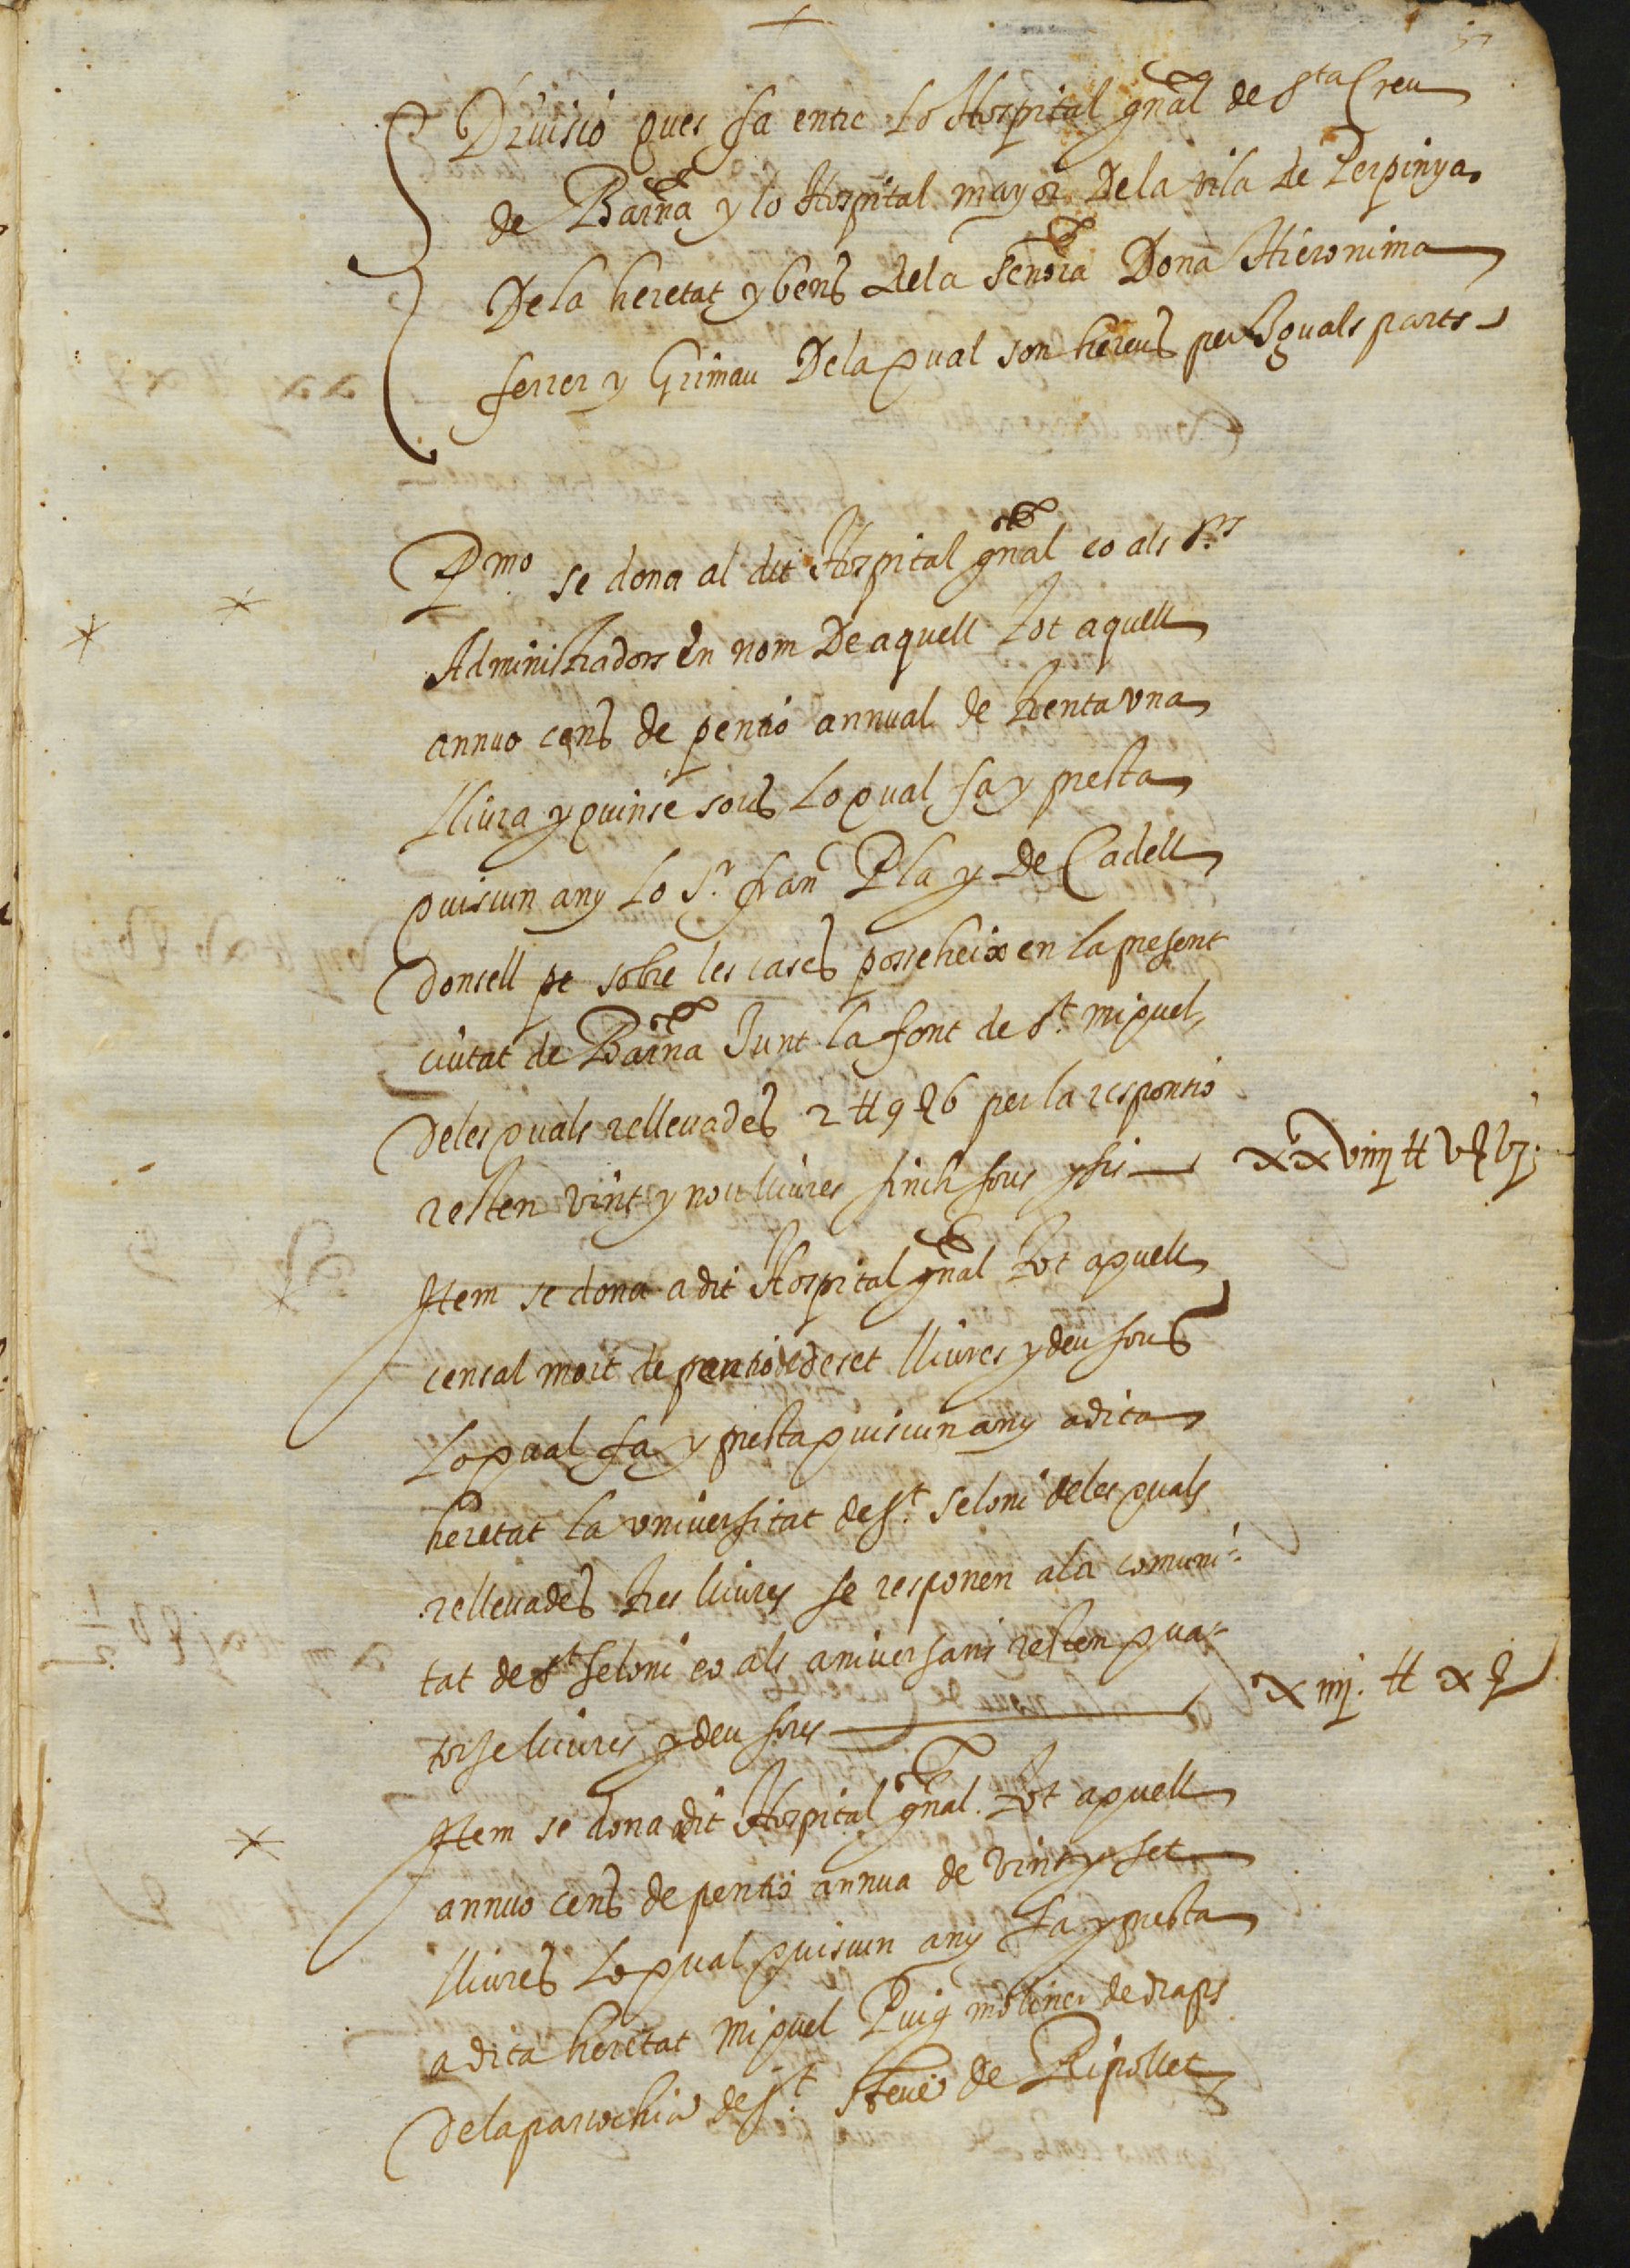 Diuisió ques fa entre lo Hospital gñal de Sta Creu
de Barña y lo Hospital mayor dela vila de Perpinya
Dela heretat y bens dela Señora Dona Hieronima
ferrer y Grimau Dela qual son hereus per Iguals parts
Pmo. se dona al dit Hospital gñal eo als Srs
Administradors En nom De aquell tot aquell
annuo cens de pentio annual de trenta una
lliura y quinse sous lo qual fa y presta
quiscun any Lo Sr. franc Pla y De Cadell
Donsell pe sobre les cases posseheix en la present
ciutat de Barña Junt la font de St. miquel,
Deles quals relleuades 2 ℔ 9 ẞ 6 per la respontio
resten vint y nou lliures sinch sous y sis
xxviiij ℔ v ẞ vj.
Item se dona a dit Hospital gñal tot aquell
censal mort de pentio deset lliures y deu sous
Lo qual fa y presta quiscun any a dita
heretat la vniuersitat de St. Seloni deles quals
relleuades tres lliures se responen ala comuni-
tat de St Seloni eo als aniuersaris resten qua-
torse lliures y deu sous
xiiij. ℔ x ẞ
Item se dona a dit Hospital gñal. tot aquell
annuo cens de pentio annua de vint y set
lliures Lo qual quiscun any fa y presta
a dita heretat Miquel Puig moliner de draps
Dela parrochia de St. Steue de Ripollet